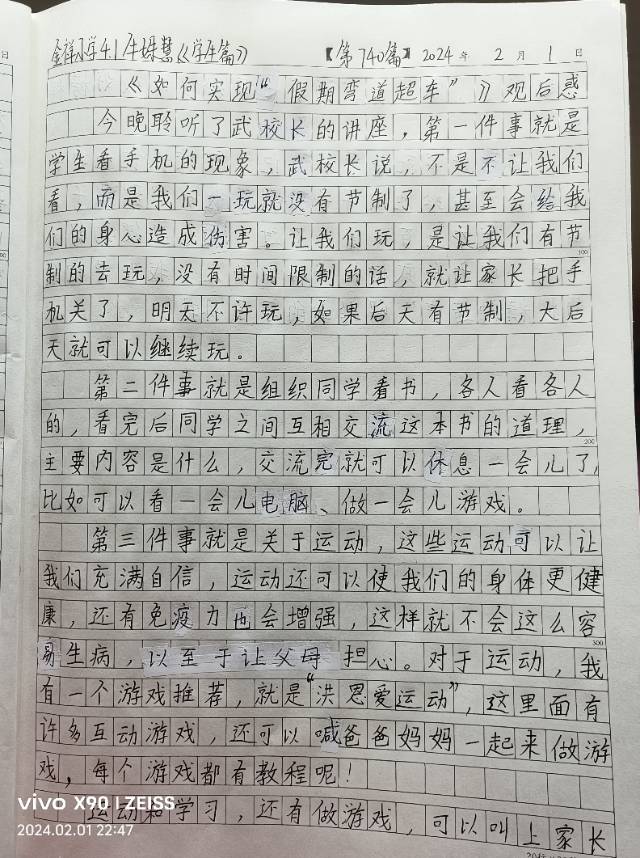 金祥小学4.1牛娅慧《学生篇》 【第740篇】 2024年2月1日
《如何实现“假期弯道超车”》观后感
今晚聆听了武校长的讲座，第一件事就是
学生看手机的现象，武校长说，不是不让我们
看，而是我们一玩就没有节制了，甚至会给我
们的身心造成伤害。让我们玩，是让我们有节
制的去玩，没有时间限制的话，就让家长把手
机关了，明天不许玩，如果后天有节制，大后
天就可以继续玩。
第二件事就是组织同学看书，各人看各人
的，看完后同学之间互相交流这本书的道理，
主要内容是什么，交流完就可以休息一会儿了，
比如可以看一会儿电脑、做一会儿游戏。
第三件事就是关于运动，这些运动可以让
我们充满自信，运动还可以使我们的身体更健
康，还有免疫力也会增强，这样就不会这么容
易生病，以至于让父母担心。对于运动，我
有一个游戏推荐，就是“洪恩爱运动”，这里面有
许多互动游戏，还可以喊爸爸妈妈一起来做游
戏，每个游戏都有教程呢！
运动和学习，还有做游戏，可以叫上家长
100
200
300
vivo X90 | ZEISS
2024.02.01 22:47